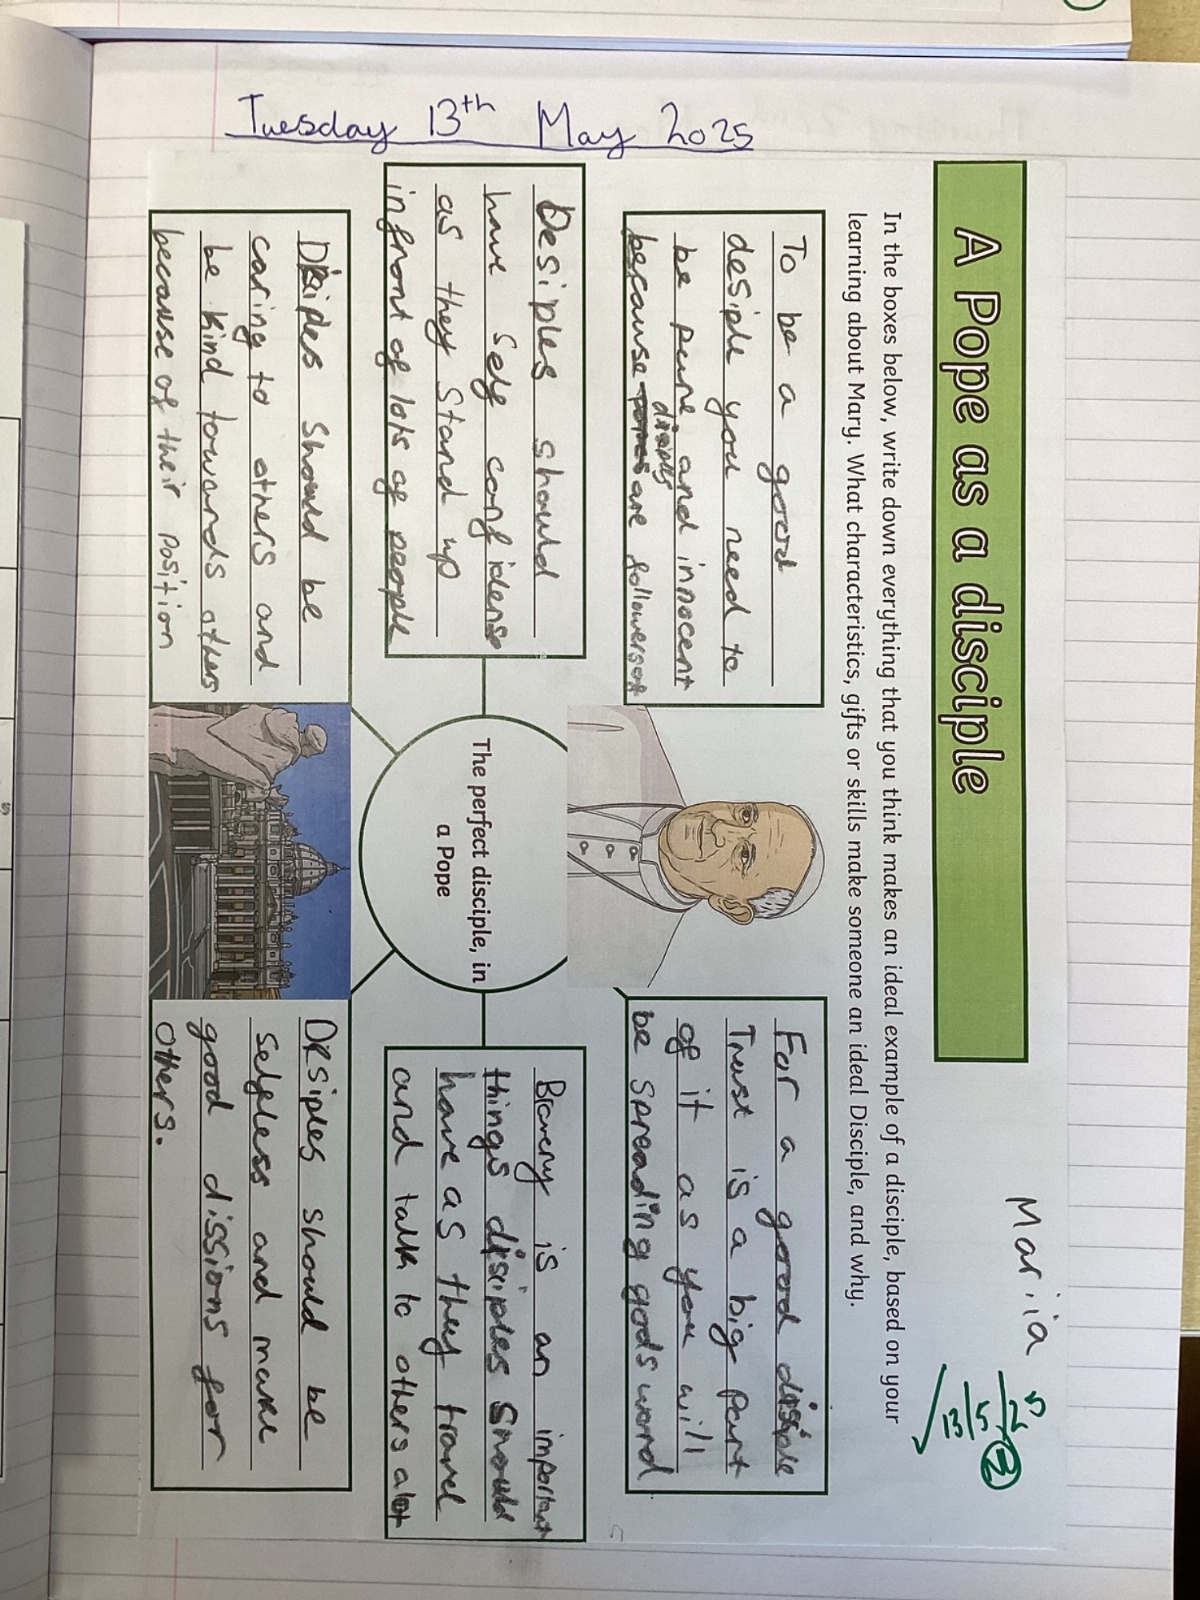 Tuesday 13th May 2025
Mariia
13/5/25
2
A Pope as a disciple
In the boxes below, write down everything that you think makes an ideal example of a disciple, based on your
learning about Mary. What characteristics, gifts or skills make someone an ideal Disciple, and why.
To be a goood
desiple you need to
be pure and innocent
disiples
because popes are followers of
For a goood disiple
Trust is a big part
of it as you will
be spreading gods word
Desiples should
have self confidense
as they stand up
infront of lots of people
The perfect disciple, in
a Pope
Bravery is an important
things disciples should
have as they travel
and talk to others alot
Disiples should be
caring to others and
be kind towards others
because of their position
Disiples should be
selfless and make
good dissions for
others.